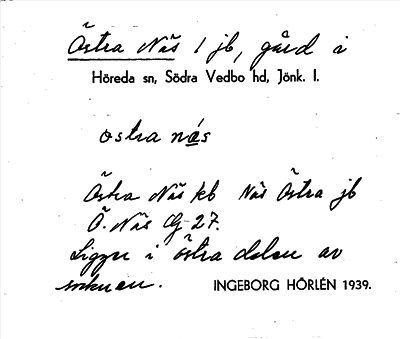 Östra Näs 1 jb, gård i
Höreda sn, Södra Vedbo hd, Jönk. l.
östra nä́s
Östra Näs kb Näs Östra jb
Ö. Näs Gj 27.
Ligger i östra delen av
socknen.
INGEBORG HÖRLÉN 1939.